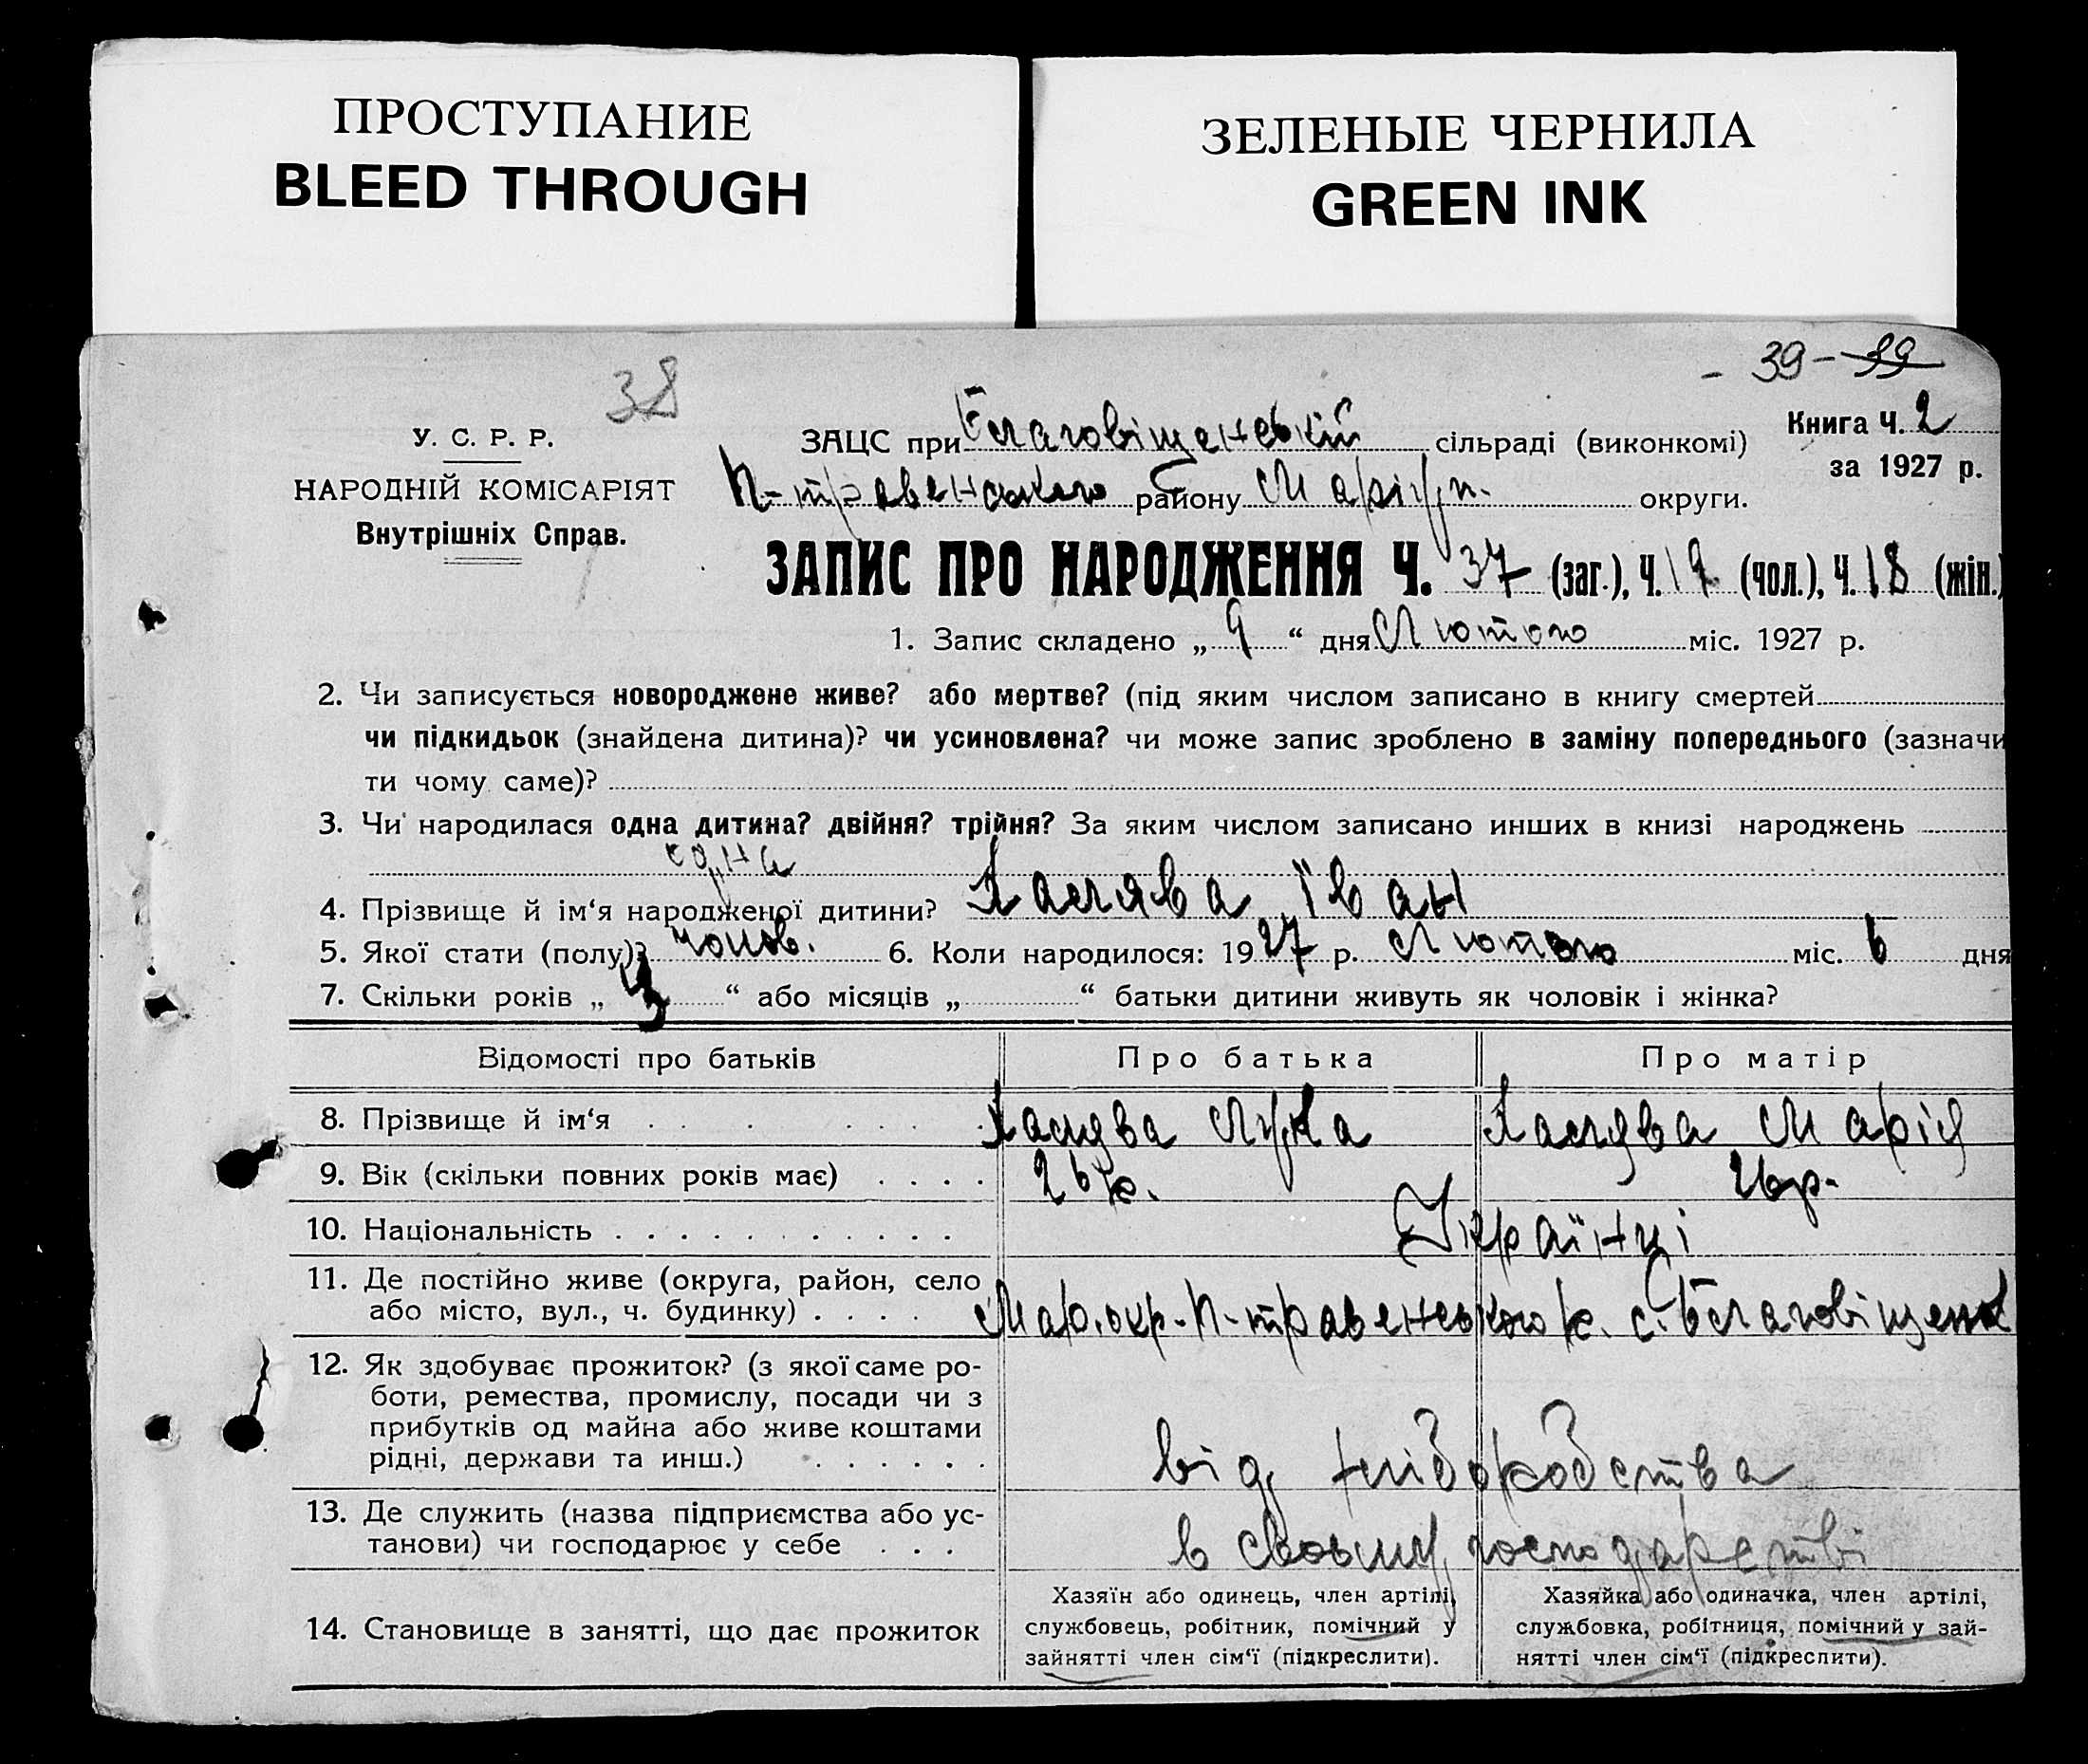 ПРОСТУПАНИЕ
BLEED THROUGH
ЗЕЛЕНЫЕ ЧЕРНИЛА
GREEN INK
- 39 - 39
38
У. С. Р. Р.
НАРОДНІЙ КОМІСАРІЯТ
Внутрішніх Справ.
ЗАЦС при Благовіщенській сільраді (виконкомі)
Книга Ч. 2
за 1927 р.
П-травенського району Маріуп. округи.
ЗАПИС ПРО НАРОДЖЕННЯ Ч. 37 (заг.), Ч. 19 (чол.), Ч. 18 (жін.)
1. Запис складено „ 9 “ дня Лютого міс. 1927 р.
2. Чи записується новороджене живе? або мертве? (під яким числом записано в книгу смертей
чи підкидьок (знайдена дитина)? чи усиновлена? чи може запис зроблено в заміну попереднього (зазначи
ти чому саме)?
3. Чи народилася одна дитина? двійня? трійня? За яким числом записано инших в книзі народжень
одна
4. Прізвище й ім‘я народженої дитини? Халява Іван
5. Якої стати (полу)? чолов. 6. Коли народилося: 1927 р. Лютого міс. 6 дня
7. Скільки років „ “ або місяців „ “ батьки дитини живуть як чоловік і жінка?
Відомості про батьків Про батька Про матір
8. Прізвище й ім‘я Халява Лука Халява Марія
9. Вік (скільки повних років має) 26 р. 26 р.
10. Національність Українці
11. Де постійно живе (округа, район, село
або місто, вул., ч. будинку) Мар. окр. П-травенського р. с. Благовіщенка
12. Як здобуває прожиток? (з якої саме ро-
боти, ремества, промислу, посади чи з
прибутків од майна або живе коштами
рідні, держави та инш.) від хліборобства
13. Де служить (назва підприємства або ус-
танови) чи господарює у себе в своьму господарстві
14. Становище в занятті, що дає прожиток
Хазяїн або одинець, член артілі,
службовець, робітник, помічний у
зайнятті член сім‘ї (підкреслити).
Хазяйка або одиначка, член артілі,
службовка, робітниця, помічний у зай-
нятті член сім‘ї (підкреслити).